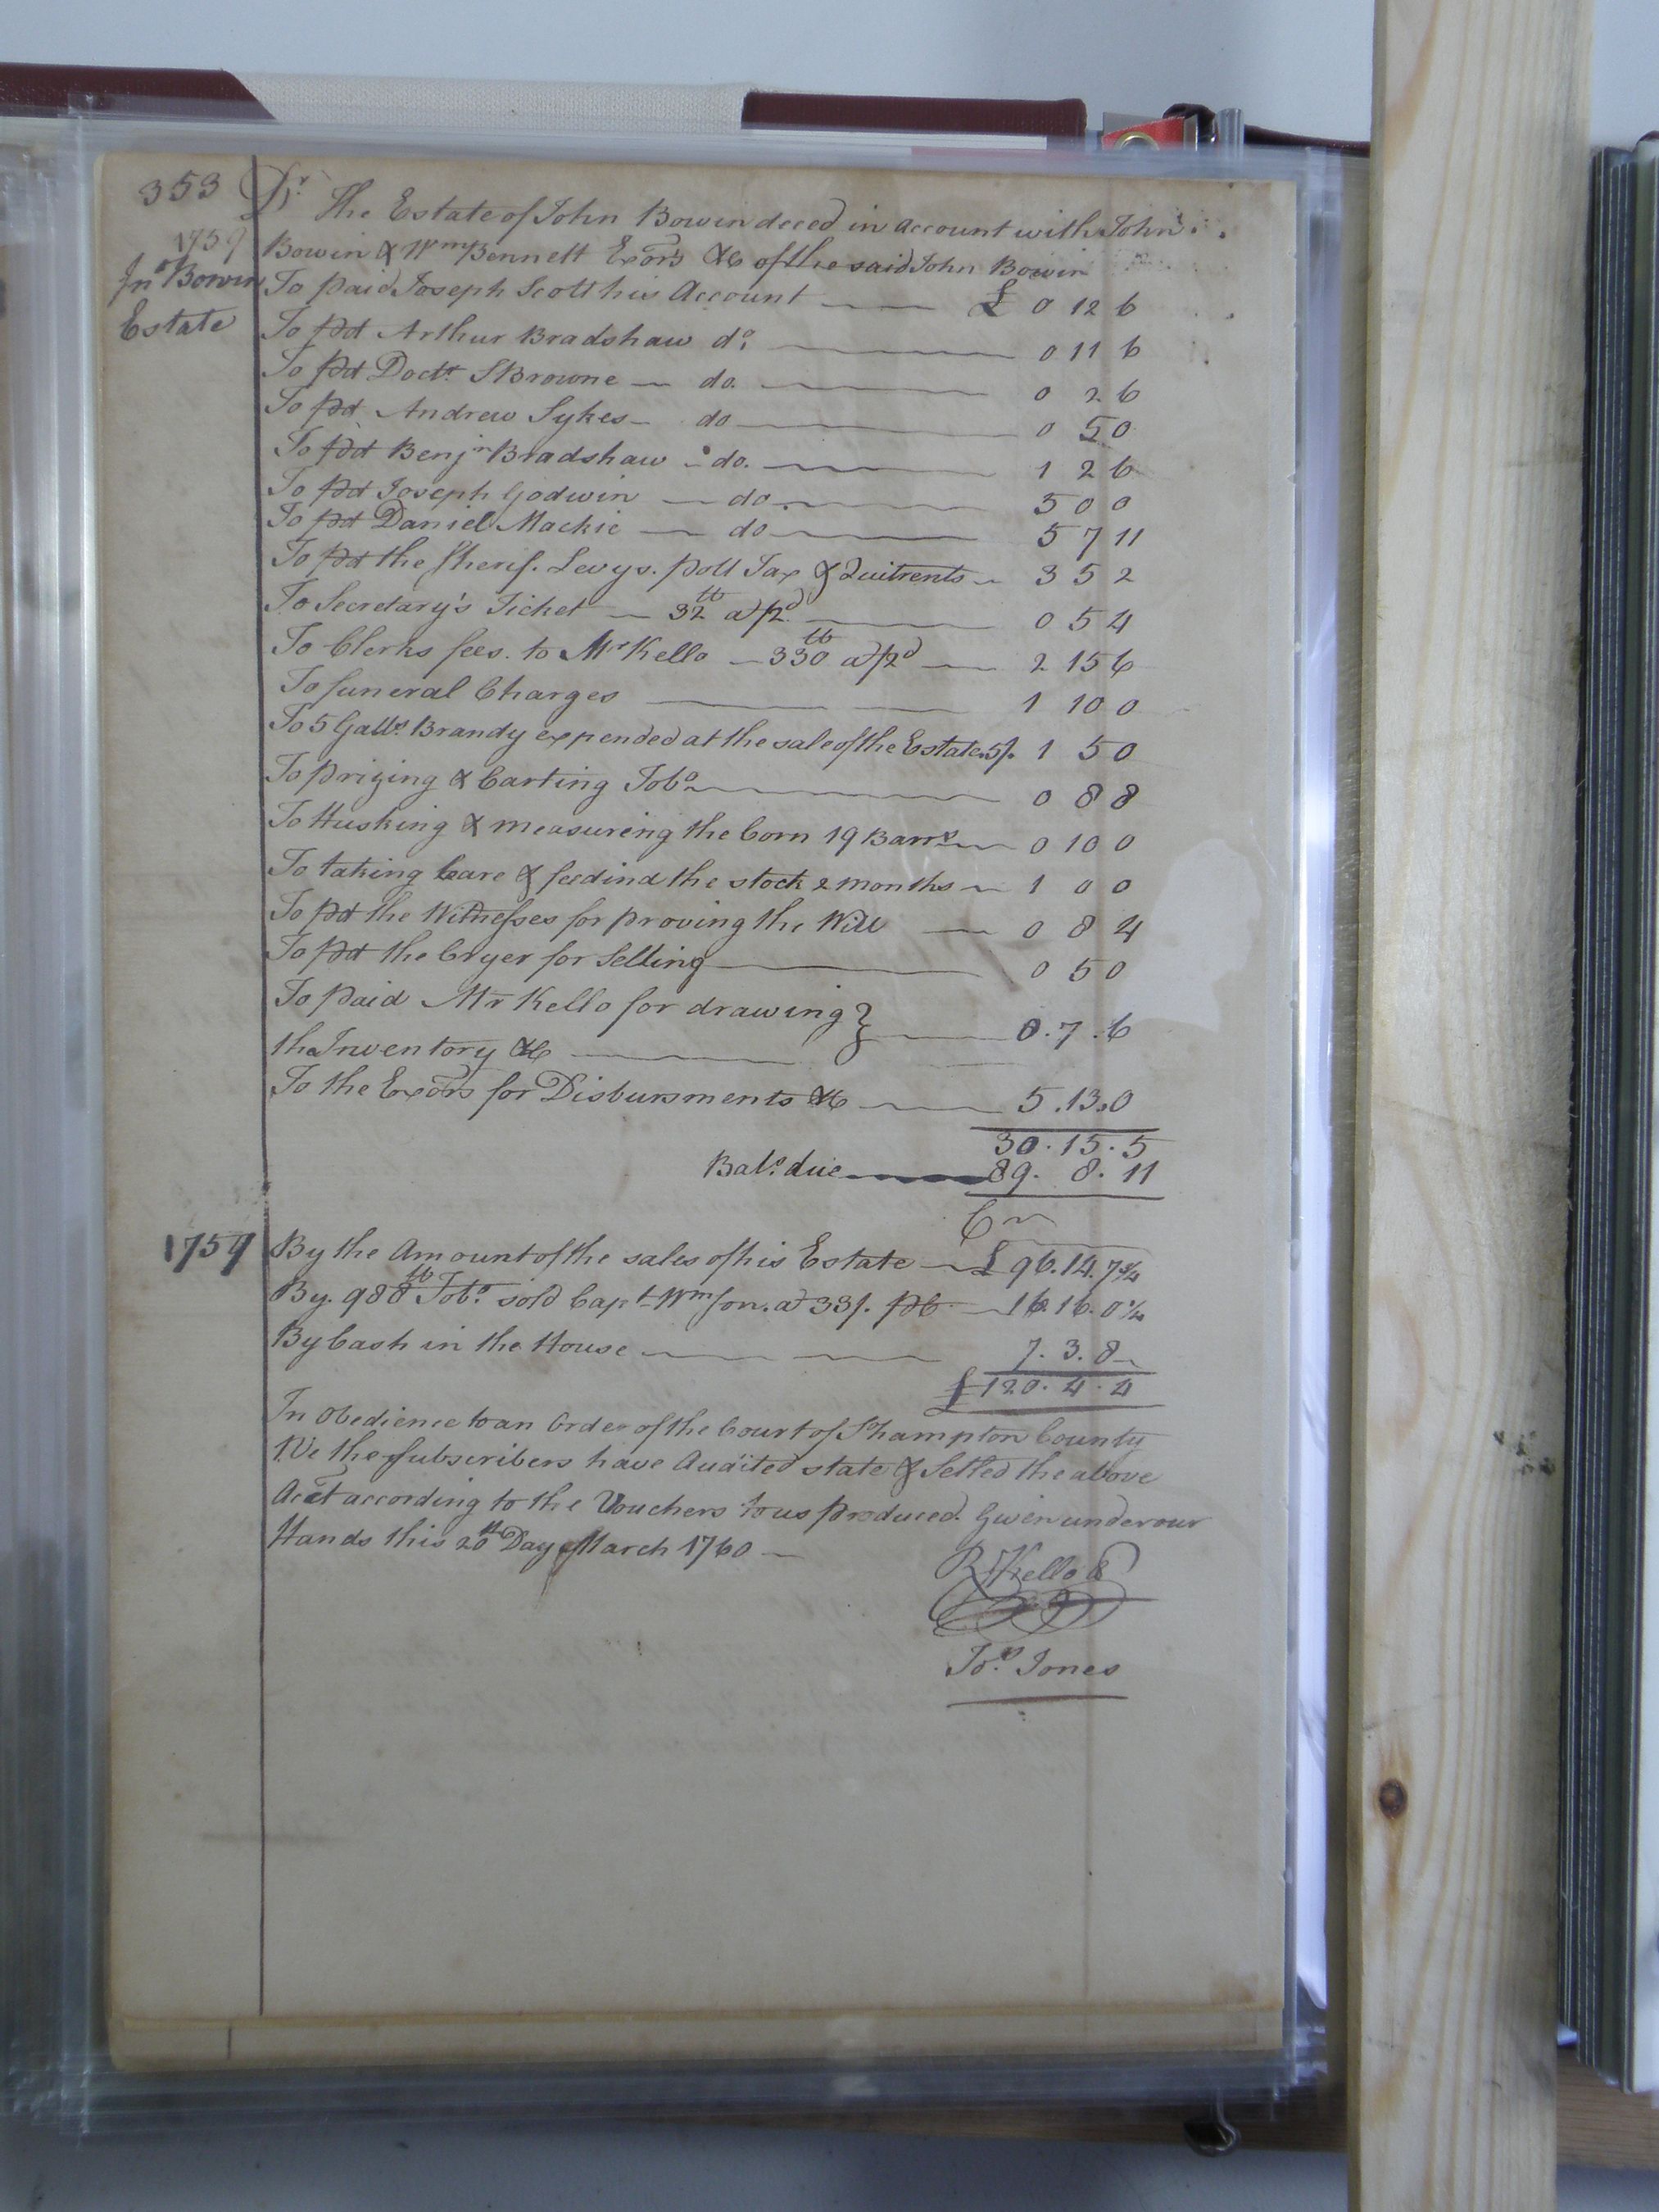 353 Dr. The Estate of John Bowin deced in account with John
1759 Bowin & Wm Bennett Exors &c of the said John Bowin
Jno Bowin Estate
To paid Joseph Scott his Account £ 0 12 6
To pd Arthur Bradshaw do. 0 11 6
To pd Doctr. Browne do. 0 2 6
To pd Andrew Sykes do 0 5 0
To pd Benjn Bradshaw do. 1 2 6
To pd Joseph Godwin do. 5 0 0
To pd Daniel Mackie do 5 7 11
To pd the Sherif. Levys. poll Tax & Quitrents 3 5 2
To Secretary's Ticket 32 lb a 2d 0 5 4
To Clerks fees. to Mr Kello 330 lb a 2d 2 15 6
To funeral Charges 1 10 0
To 5 Galls. Brandy expended at the sale of the Estate 5/. 1 5 0
To prizing & Carting Tobo 0 8 8
To Husking & measureing the Corn 19 Barrs 0 10 0
To taking Care & feedind the stock 2 months 1 0 0
To pd the Witnesses for proving the Will 0 8 4
To pd the Cryer for Selling 0 5 0
To paid Mr Kello for drawing }
the Inventory &c 0.7.6
To the Exors for Disbursments &c 5.13.0
30.15.5
Bale. due 89. 8. 11
Cr
1759 By the Amount of the sales of his Estate £ 96.14.7 3/4
By. 988 lb Tobo. sold Capt Wmson. at 33/. pC 16.16.0 1/4
By Cash in the House 7.3.8
£120.4.4
In Obedience to an Order of the Court of Shampton County
We the Subscribers have Audited state & Setled the above
Acct according to the Vouchers to us produced. Given under our
Hands this 20th Day of March 1760
R Kello
Jos. Jones